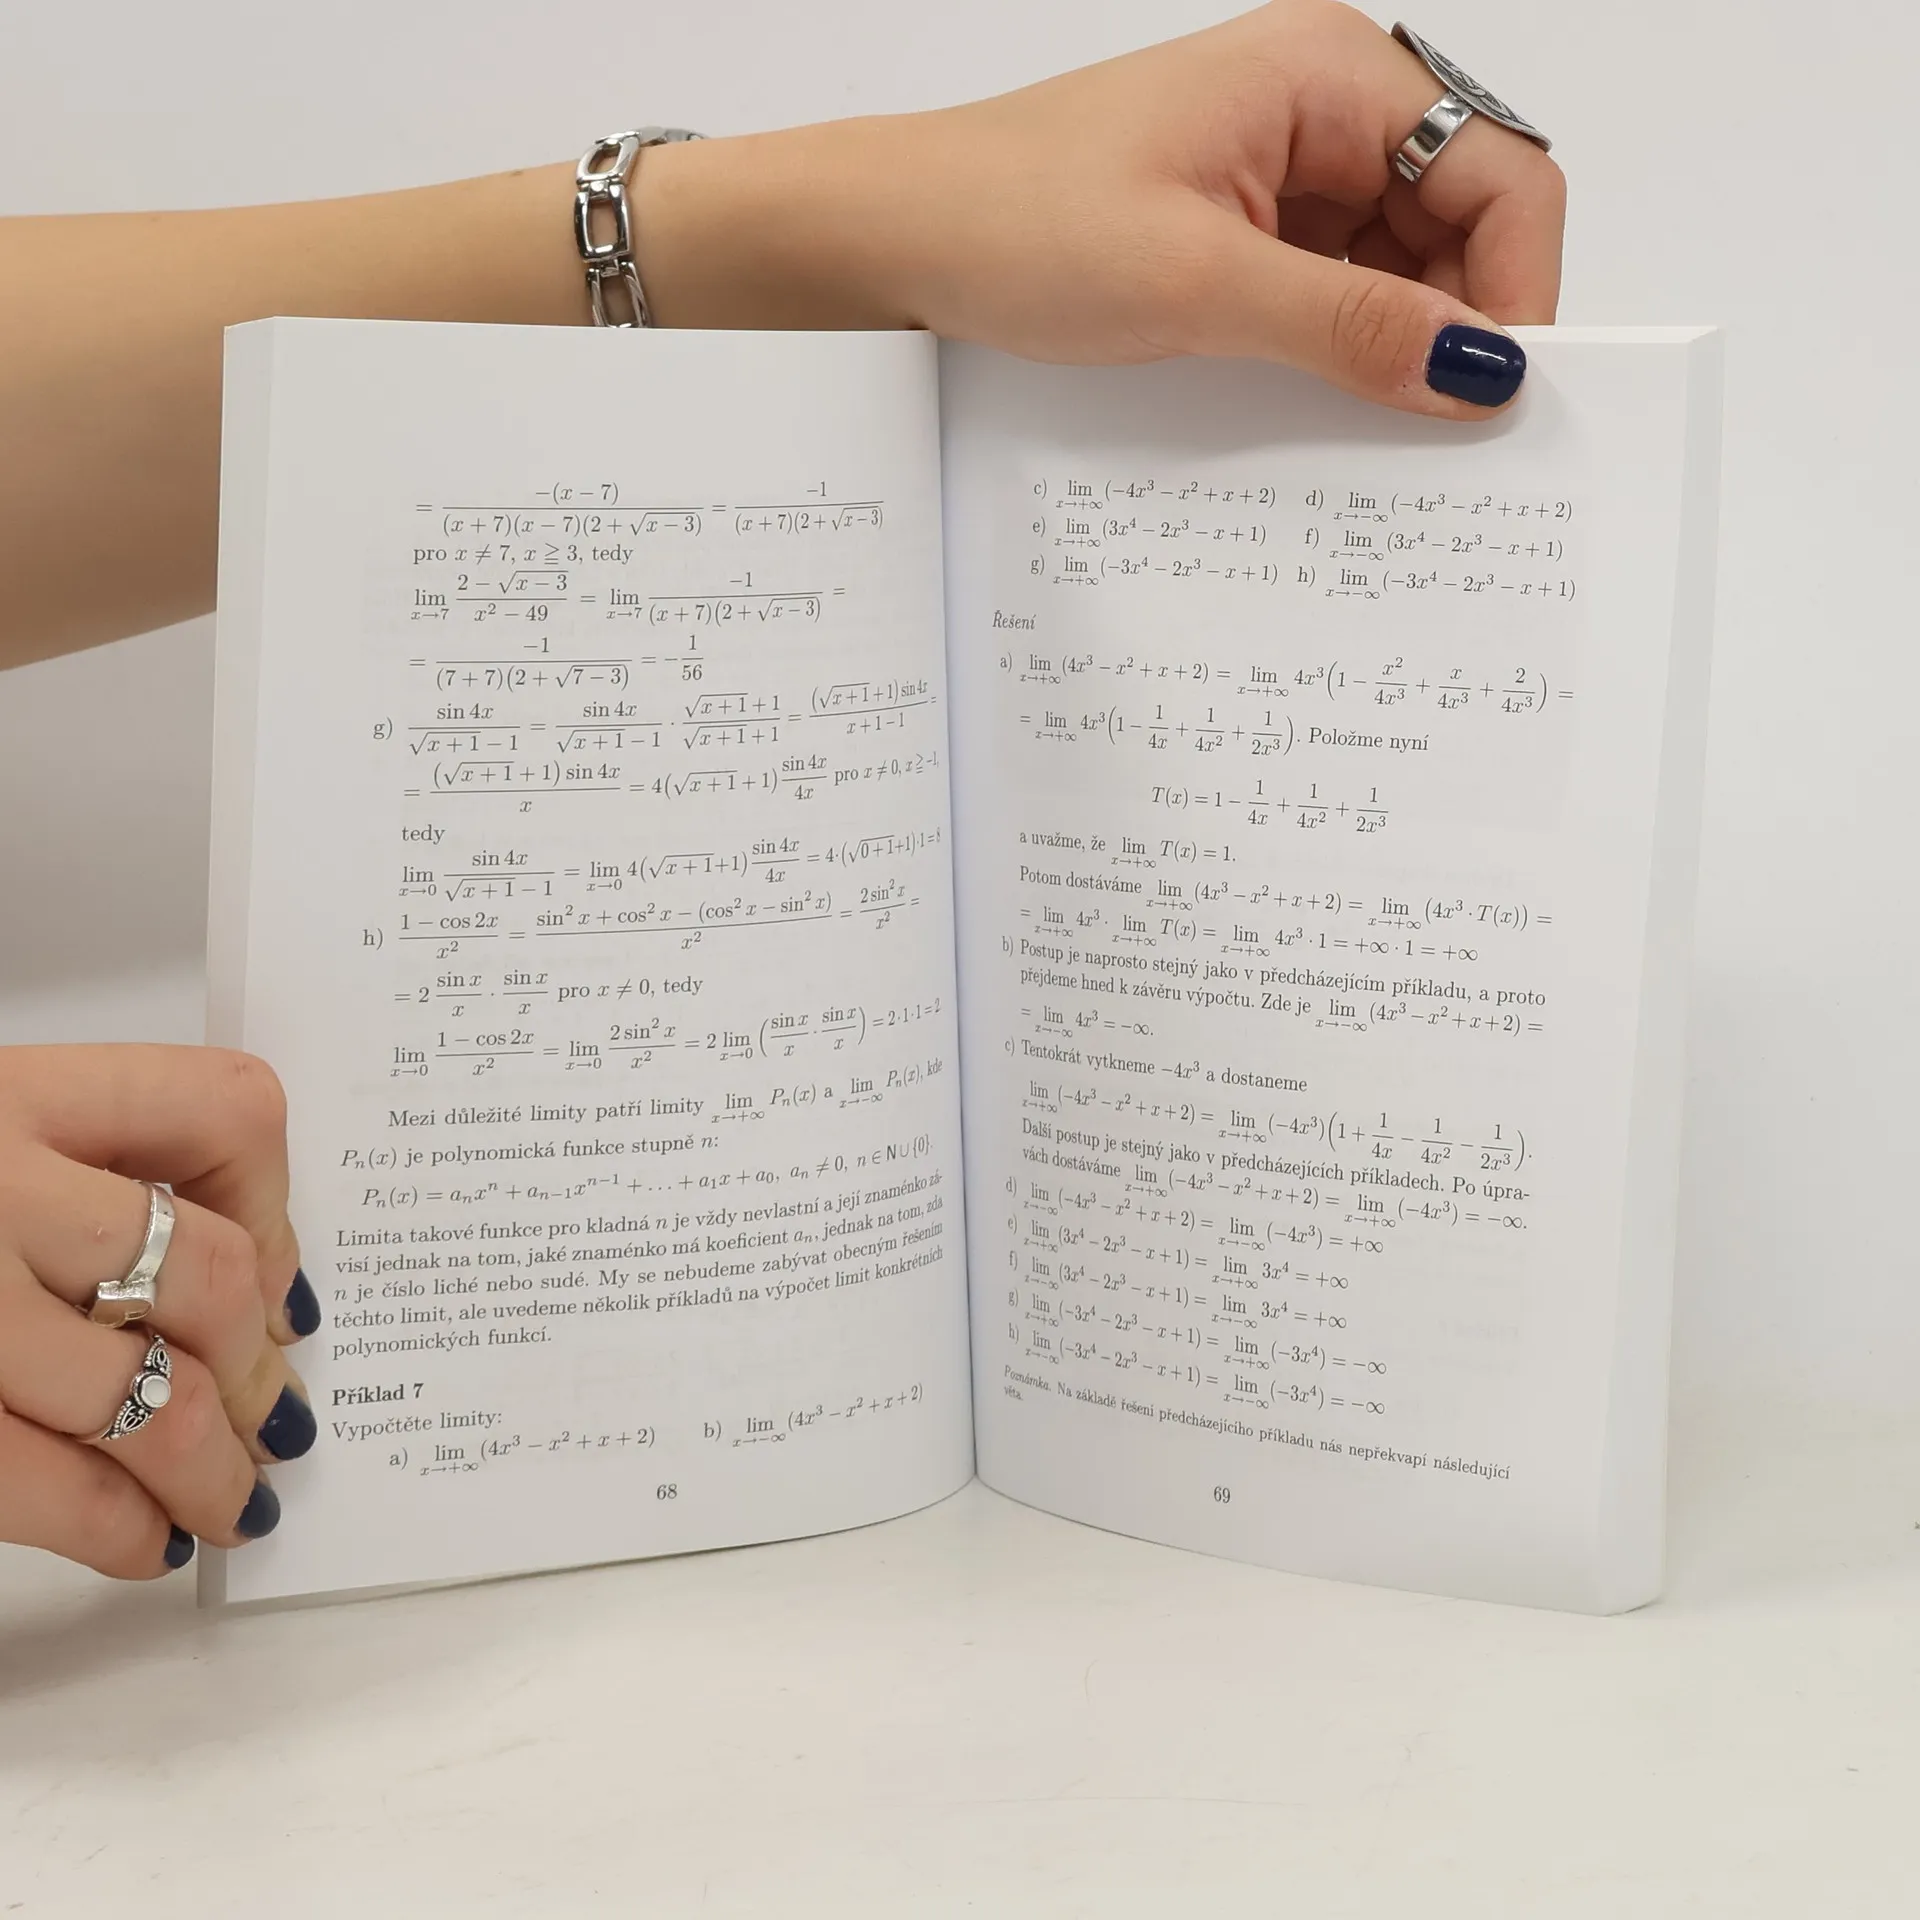 = −(x − 7) / ((x + 7)(x − 7)(2 + √(x − 3))) = −1 / ((x + 7)(2 + √(x − 3)))
pro x ≠ 7, x ≧ 3, tedy
lim_{x→7} (2 − √(x − 3)) / (x² − 49) = lim_{x→7} −1 / ((x + 7)(2 + √(x − 3))) =
= −1 / ((7 + 7)(2 + √(7 − 3))) = −1/56
g) sin 4x / (√(x + 1) − 1) = sin 4x / (√(x + 1) − 1) · (√(x + 1) + 1) / (√(x + 1) + 1) = (√(x + 1) + 1) sin 4x / (x + 1 − 1) =
= (√(x + 1) + 1) sin 4x / x = 4(√(x + 1) + 1) sin 4x / 4x pro x ≠ 0, x ≧ −1,
tedy
lim_{x→0} sin 4x / (√(x + 1) − 1) = lim_{x→0} 4(√(x + 1) + 1) sin 4x / 4x = 4·(√(0 + 1) + 1)·1 = 8
h) (1 − cos 2x) / x² = (sin² x + cos² x − (cos² x − sin² x)) / x² = 2 sin² x / x² =
= 2 sin x / x · sin x / x pro x ≠ 0, tedy
lim_{x→0} (1 − cos 2x) / x² = lim_{x→0} 2 sin² x / x² = 2 lim_{x→0} (sin x / x · sin x / x) = 2·1·1 = 2
Mezi důležité limity patří limity lim_{x→+∞} Pₙ(x) a lim_{x→−∞} Pₙ(x), kde
Pₙ(x) je polynomická funkce stupně n:
Pₙ(x) = aₙxⁿ + aₙ₋₁xⁿ⁻¹ + … + a₁x + a₀, aₙ ≠ 0, n ∈ N ∪ {0}.
Limita takové funkce pro kladná n je vždy nevlastní a její znaménko zá-
visí jednak na tom, jaké znaménko má koeficient aₙ, jednak na tom, zda
n je číslo liché nebo sudé. My se nebudeme zabývat obecným řešením
těchto limit, ale uvedeme několik příkladů na výpočet limit konkrétních
polynomických funkcí.
Příklad 7
Vypočtěte limity:
a) lim_{x→+∞} (4x³ − x² + x + 2) b) lim_{x→−∞} (4x³ − x² + x + 2)
68
c) lim_{x→+∞} (−4x³ − x² + x + 2) d) lim_{x→−∞} (−4x³ − x² + x + 2)
e) lim_{x→+∞} (3x⁴ − 2x³ − x + 1) f) lim_{x→−∞} (3x⁴ − 2x³ − x + 1)
g) lim_{x→+∞} (−3x⁴ − 2x³ − x + 1) h) lim_{x→−∞} (−3x⁴ − 2x³ − x + 1)
Řešení
a) lim_{x→+∞} (4x³ − x² + x + 2) = lim_{x→+∞} 4x³(1 − x²/4x³ + x/4x³ + 2/4x³) =
= lim_{x→+∞} 4x³(1 − 1/4x + 1/4x² + 1/2x³). Položme nyní
T(x) = 1 − 1/4x + 1/4x² + 1/2x³
a uvažme, že lim_{x→+∞} T(x) = 1.
Potom dostáváme lim_{x→+∞} (4x³ − x² + x + 2) = lim_{x→+∞} (4x³ · T(x)) =
= lim_{x→+∞} 4x³ · lim_{x→+∞} T(x) = lim_{x→+∞} 4x³ · 1 = +∞ · 1 = +∞
b) Postup je naprosto stejný jako v předcházejícím příkladu, a proto
přejdeme hned k závěru výpočtu. Zde je lim_{x→−∞} (4x³ − x² + x + 2) =
= lim_{x→−∞} 4x³ = −∞.
c) Tentokrát vytkneme −4x³ a dostaneme
lim_{x→+∞} (−4x³ − x² + x + 2) = lim_{x→+∞} (−4x³)(1 + 1/4x − 1/4x² − 1/2x³).
Další postup je stejný jako v předcházejících příkladech. Po úpra-
vách dostáváme lim_{x→+∞} (−4x³ − x² + x + 2) = lim_{x→+∞} (−4x³) = −∞.
d) lim_{x→−∞} (−4x³ − x² + x + 2) = lim_{x→−∞} (−4x³) = +∞
e) lim_{x→+∞} (3x⁴ − 2x³ − x + 1) = lim_{x→+∞} 3x⁴ = +∞
f) lim_{x→−∞} (3x⁴ − 2x³ − x + 1) = lim_{x→−∞} 3x⁴ = +∞
g) lim_{x→+∞} (−3x⁴ − 2x³ − x + 1) = lim_{x→+∞} (−3x⁴) = −∞
h) lim_{x→−∞} (−3x⁴ − 2x³ − x + 1) = lim_{x→−∞} (−3x⁴) = −∞
Poznámka. Na základě řešení předcházejícího příkladu nás nepřekvapí následující
věta.
69